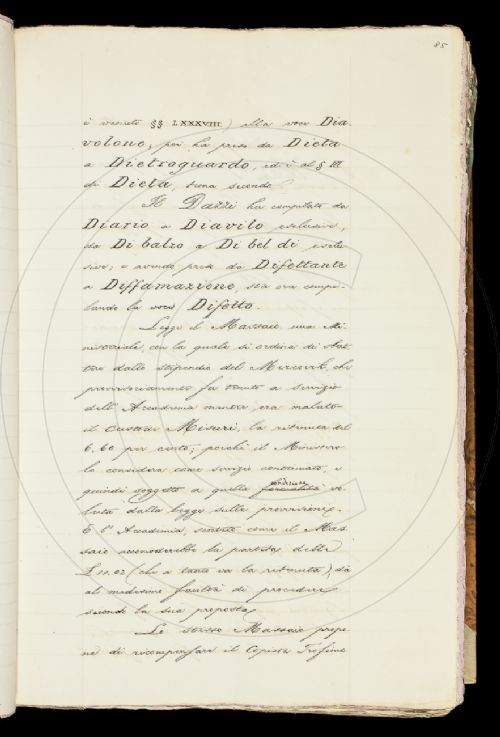 85
è venuto §§ LXXXVIII) alla voce Dia-
volone; poi ha preso da Dieta
a Dietroguardo, ed è al § III
di Dieta, tema secondo.
Il Dazzi ha compilato da
Diario a Diavito esclusive,
da Di balzo a Di bel dì esclu-
sive; e avendo preso da Difettante
a Diffamazione, sta ora compi-
lando la voce Difetto.
Legge il Massaio una Mi-
nisteriale, con la quale si ordina di detrar-
dallo stipendio del
provvisoriamente fu tenuto a servizio
dell'Accademia mentre era malato
il Custode Misuri, la ritenuta del
6.60 per cento; perchè il Ministero
lo considera come servizio continuato, e
quindi soggetto a quella condizione vo-
luta dalla legge sulle pensioni.
E l'Accademia, sentito come il Mas-
saio accomoderebbe la partita delle
£ 11.02 (chè a tanto va la ritenuta), dà
al medesimo facoltà di procedere
secondo la sua proposta.
Lo stesso Massaio propo-
ne di ricompensare il Copista